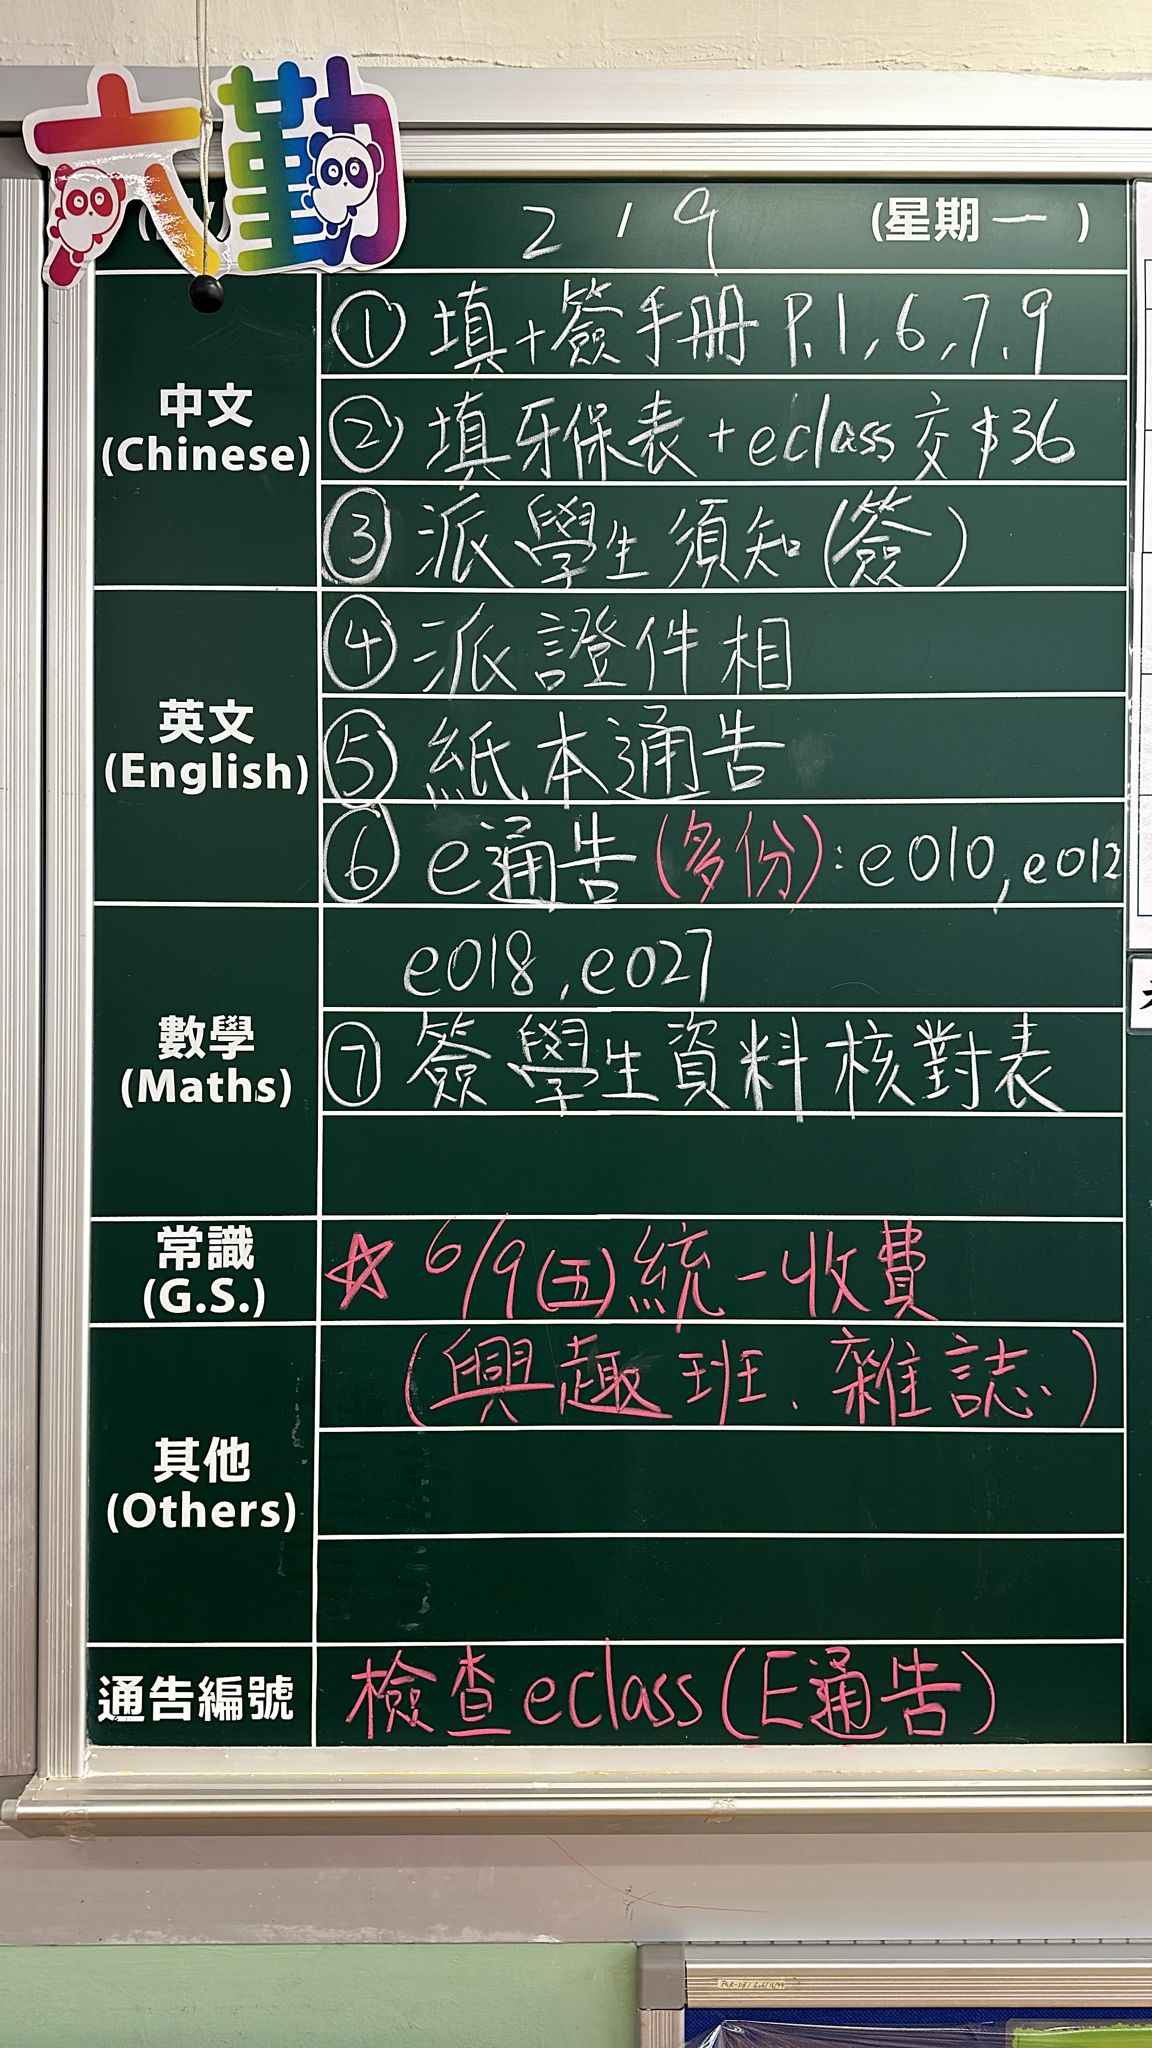 六勤
2 / 9 (星期一)
中文
(Chinese)
① 填+簽手冊 P.1, 6, 7, 9
② 填牙保表 + eclass 交 $36
③ 派學生須知 (簽)
英文
(English)
④ 派證件相
⑤ 紙本通告
⑥ e通告 (多份) : e010, e012
數學
(Maths)
e018, e027
⑦ 簽學生資料核對表
常識
(G.S.)
☆ 6/9 (五) 統一收費
其他
(Others)
(興趣班、雜誌)
通告編號
檢查 eclass (E通告)